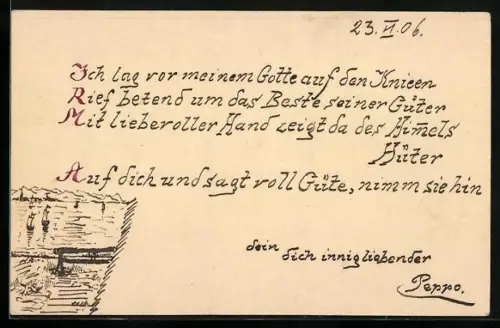 23. VI. 06.
Ich lag vor meinem Gotte auf den Knieen
Rief betend um das Beste seiner Güter
Mit liebevoller Hand zeigt da des Him̄els
Hüter
Auf dich und sagt voll Güte, nimm sie hin
dein
dich innigliebender
Peppo.